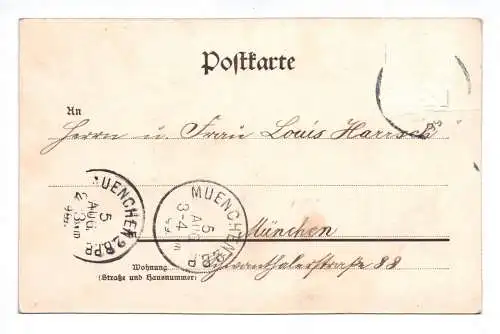 Postkarte
An
Herrn u. Frau Louis
MUENCHEN 2 B.P.
5
AUG
MUENCHEN
5
AUG
3-4
München
Wohnung
(Straße und Hausnummer)
Schwanthalerstraße 88